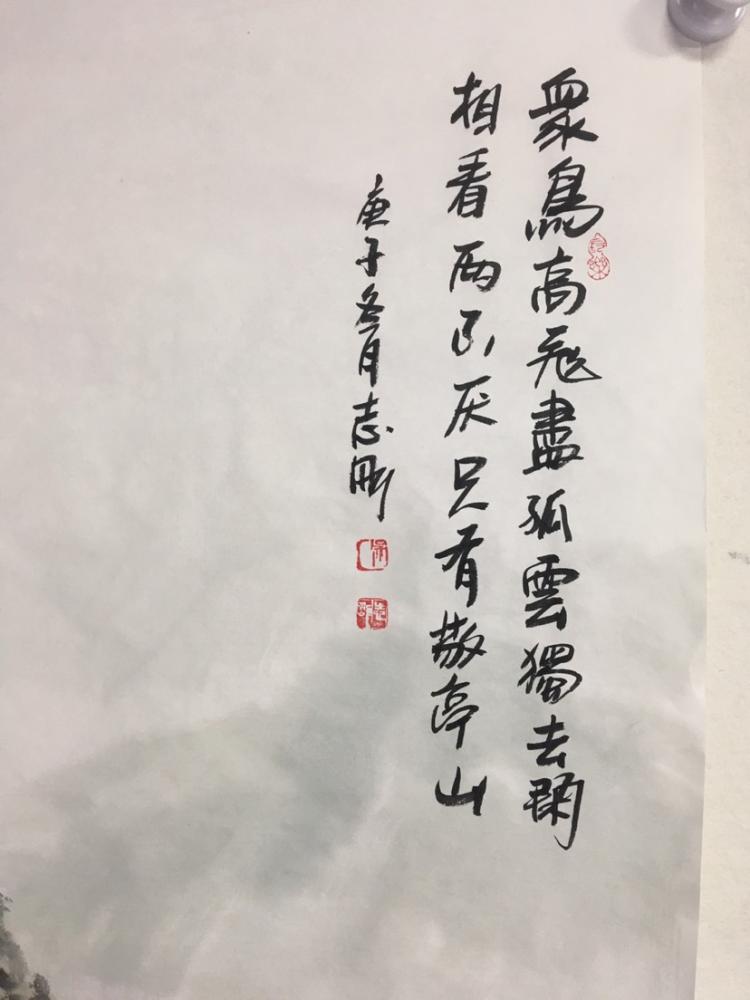 衆鳥高飛盡孤雲獨去閑
相看两不厌只有敬亭山
庚子冬月志剛